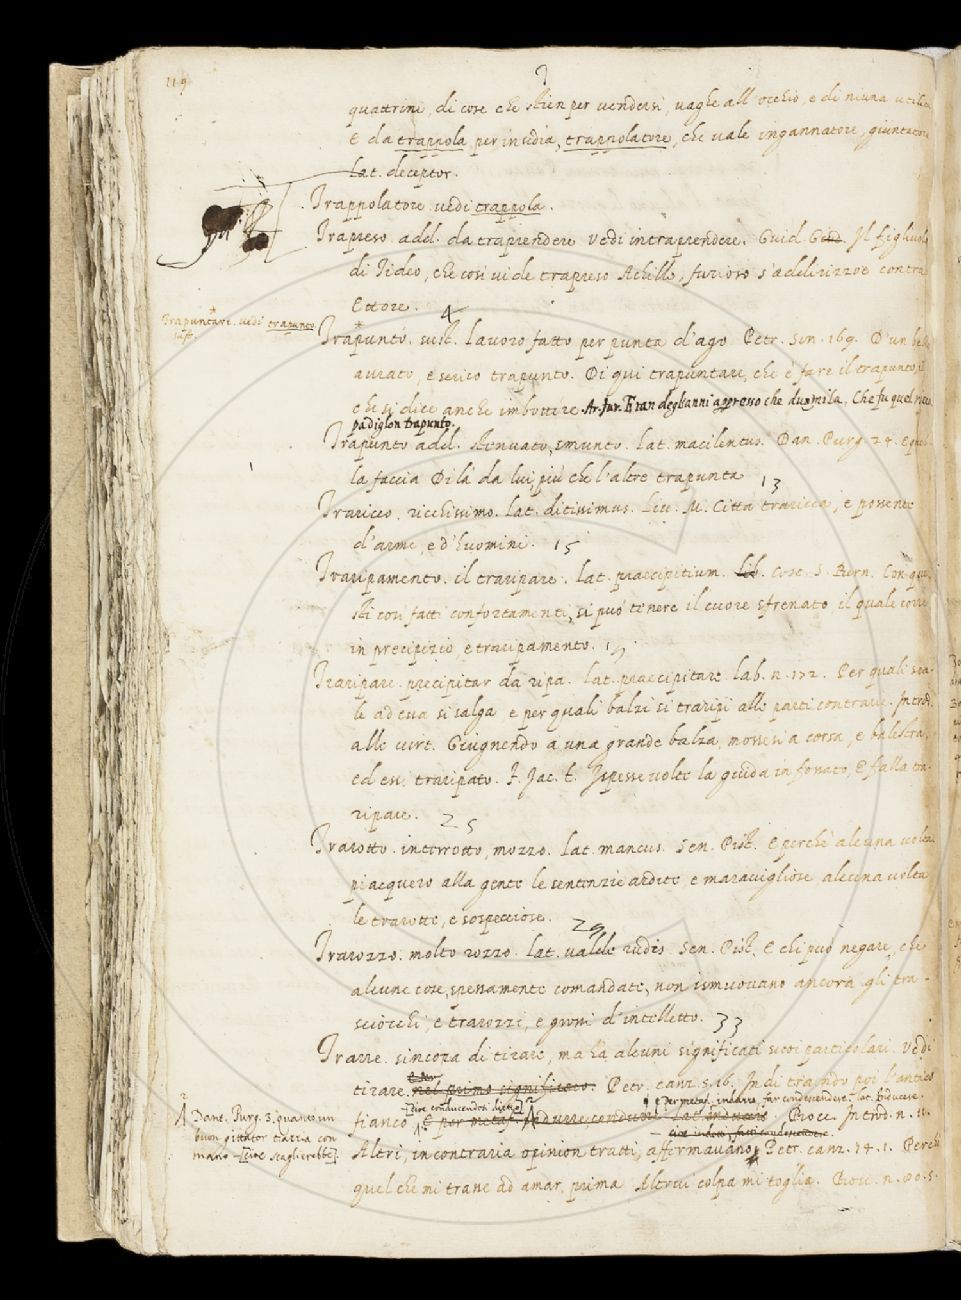 119
quattrini, di cose che stien per vendersi, vaghe all'occhio, e di niuna utilità
E da trappola per insidia, trappolatore, che vale ingannatore, giuntatore
Lat. deceptor.
Trappolatore vedi trappola.
Trapreso. add. da traprendere vedi intraprendere. Guid. Giud. Il figliuolo
di Tideo, che così vide trapreso Achille, furioso s'addirizzoe contra
Ettore. 4
* Trapuntare. vedi trapunto
sust.
* Trapunto. sust. Lavoro fatto per punta d'ago Petr. Son. 169. D'un bello
aurato, e serico trapunto. Di qui trapuntare, che è fare il trapunto, il
che si dice anche imbottire Ar. fur. Eran degli anni appresso che duo mila, Che fu quel ricco
padiglon trapunto.
Trapunto add. Stenuato, smunto. Lat. macilentus. Dan. Purg. 24. E quel-
la faccia Di là da lui, più che l'altre trapunta 13
Trariccο. ricchissimo. Lat. ditissimus. Liv. M. Città traricca, e possente
d'arme, e d'huomini. 15
Traripamento. il traripare. Lat. praecipitium. Lib. Cosc. S. Bern. Con que-
sti così fatti confortamenti, si può tenere il cuore sfrenato, il quale corre
in precipizio, e traripamento. 19
Traripare. precipitar da ripa. Lat. praecipitare. Lab. n. 172. Per quali sca-
le ad ella si salga e per quali balzi si traripi alle parti contrarie. Introd.
alle virt. Giugnendo a una grande balza, mossesi a corsa, e
ed essi traripato. F. Jac. t. Ispesse volte la guida in fossato, E falla tra-
ripare. 25
Trarotto. interrotto, mozzo. Lat. mancus. Sen. Pist. E perchè alcuna volta
piacquero alla gente le sentenzie ardite, e maravigliose, alcuna volta
le trarotte, e sospecciose. 29
Trarozzo. molto rozzo. Lat. valde rudis. Sen. Pist. E chi può negare, che
alcune cose, spessamente comandate, non ismuovano ancora gli tra-
sciocchi, e trarozzi, e grossi d'intelletto. 33
Trarre. sincopa di tirare, ma ha alcuni significati suoi particolari. Vedi
tirare. nel primo significato. Petr. canz. 5. 16. Indi traendo poi l'antico
fianco Per metaf. indurre, far condescendere. Lat. inducere. Bocc. Introd. n. 11.
Dant. Purg. 3. quanto un
buon gittator trarria con
mano [cioè scaglierebbe].
Altri, in contraria opinion tratti, affermavano Petr. canz. 14. 1. Perchè
quel che mi trasse ad amar prima Altrui colpa mi toglia. Bocc. n. 80. 5.